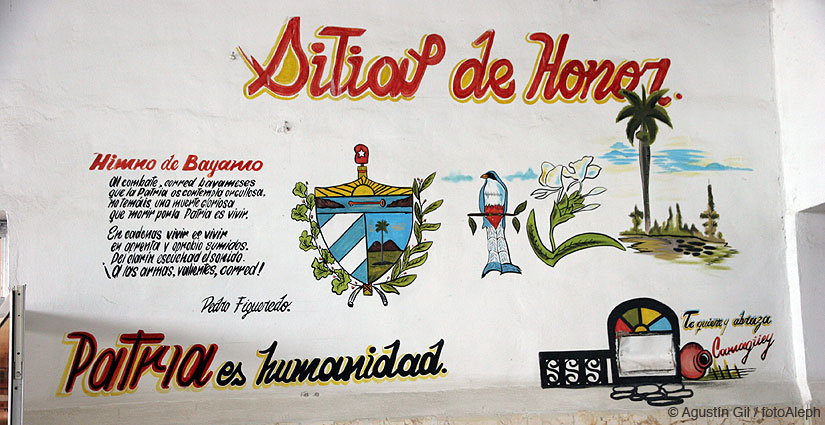 Sitial de Honor.
Himno de Bayamo
Al combate, corred bayameses
que la Patria os contempla orgullosa.
no temáis una muerte gloriosa
que morir por la Patria es vivir.
En cadenas vivir es vivir
en afrenta y oprobio sumidos.
Del clarín escuchad el sonido.
¡A las armas, valientes, corred!
Pedro Figueredo.
Patria es humanidad.
Te quiere y abraza
Camagüey
© Agustín Gil / fotoAleph